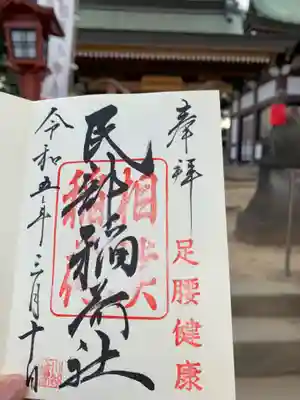 奉拝
足腰健康
民部稲荷社
相殿
稲荷
令和五年三月十日